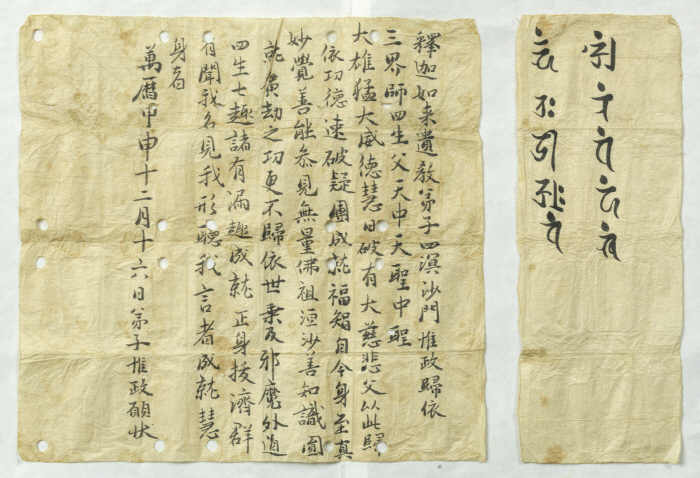 釋迦如来遺教弟子四溟沙門惟政歸依
三界師四生父天中天聖中聖
大雄猛大威德慧日破有大慈悲父以此歸
依功德速破疑團成就福智自今身至真
妙覺善能叅見無量佛祖洹沙善知識圓
就廣劫之功更不歸依世乘及邪魔外道
四生七趣諸有漏趣成就正身拔濟群
有聞我名見我形聽我言者成就慧
身者
萬曆甲申十二月十六日弟子惟政願狀